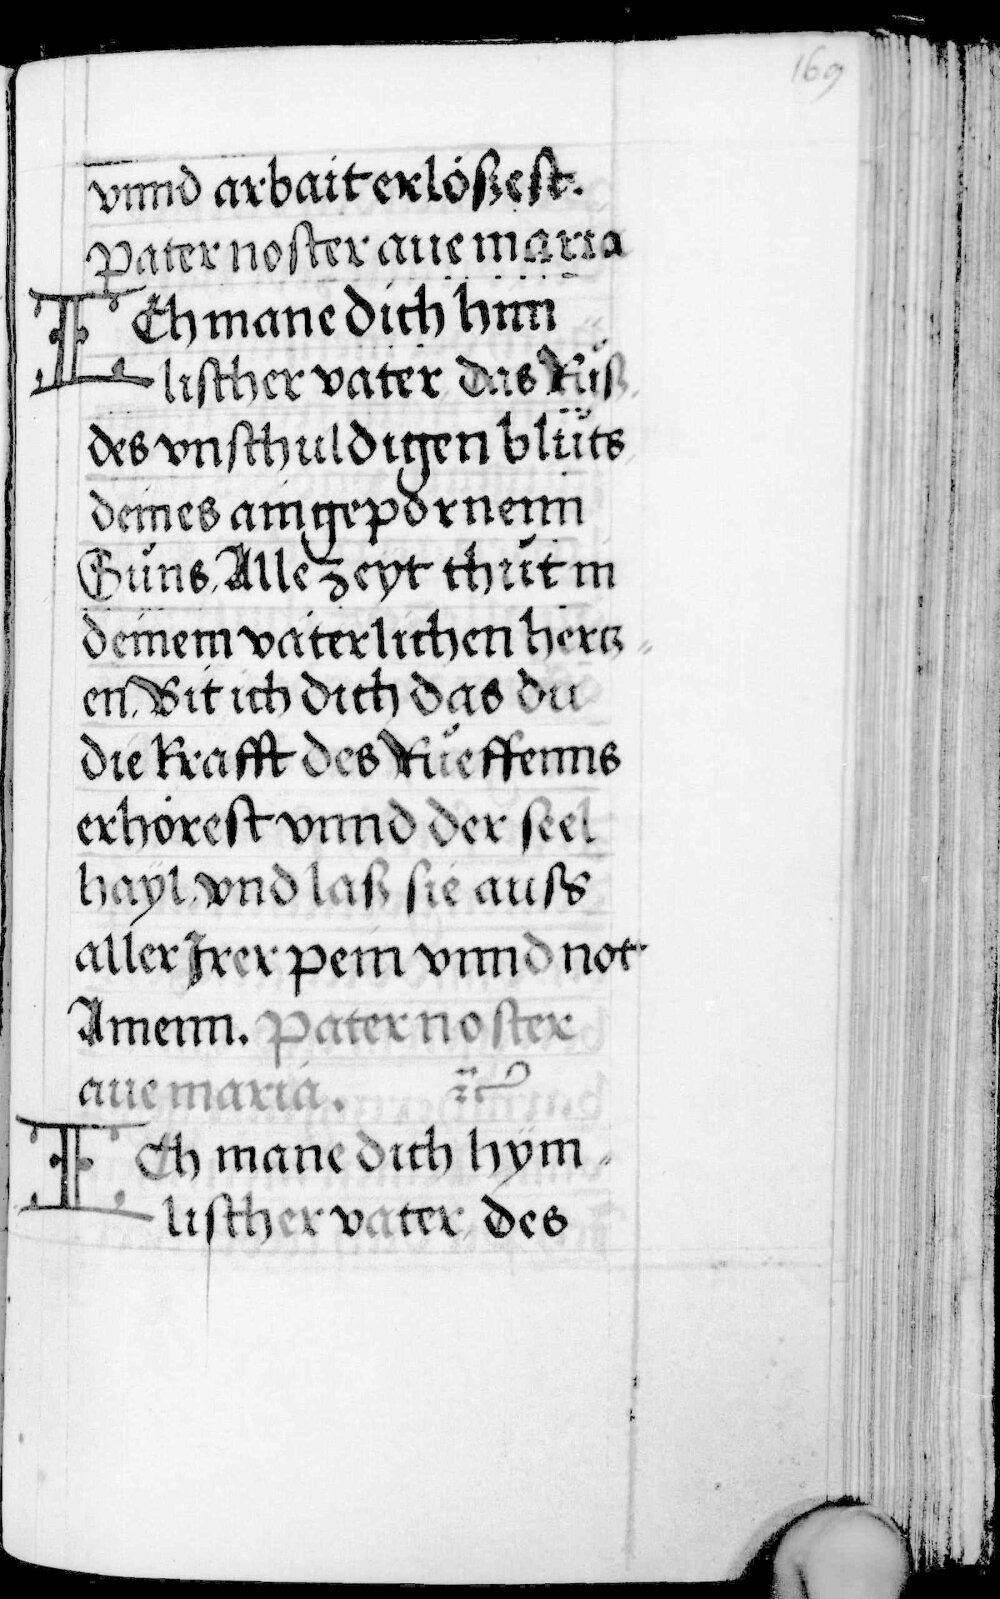 169
vnnd arbait erlößest.
Pater noster aue maria
ICh mane dich him
lischer vater das Růß
des vnschuldigen blůts
deines aingepornenn
Sůns, Alle zeyt thůt in
deinem vaterlichen hertz=
en, Bit ich dich das du
die krafft des Růeffenns
erhörest vnnd der seel
hayl, vnd laß sie auss
aller Irer pein vnnd not
Amenn. Pater noster
aue maria.
ICh mane dich hÿm=
lischer vater, des